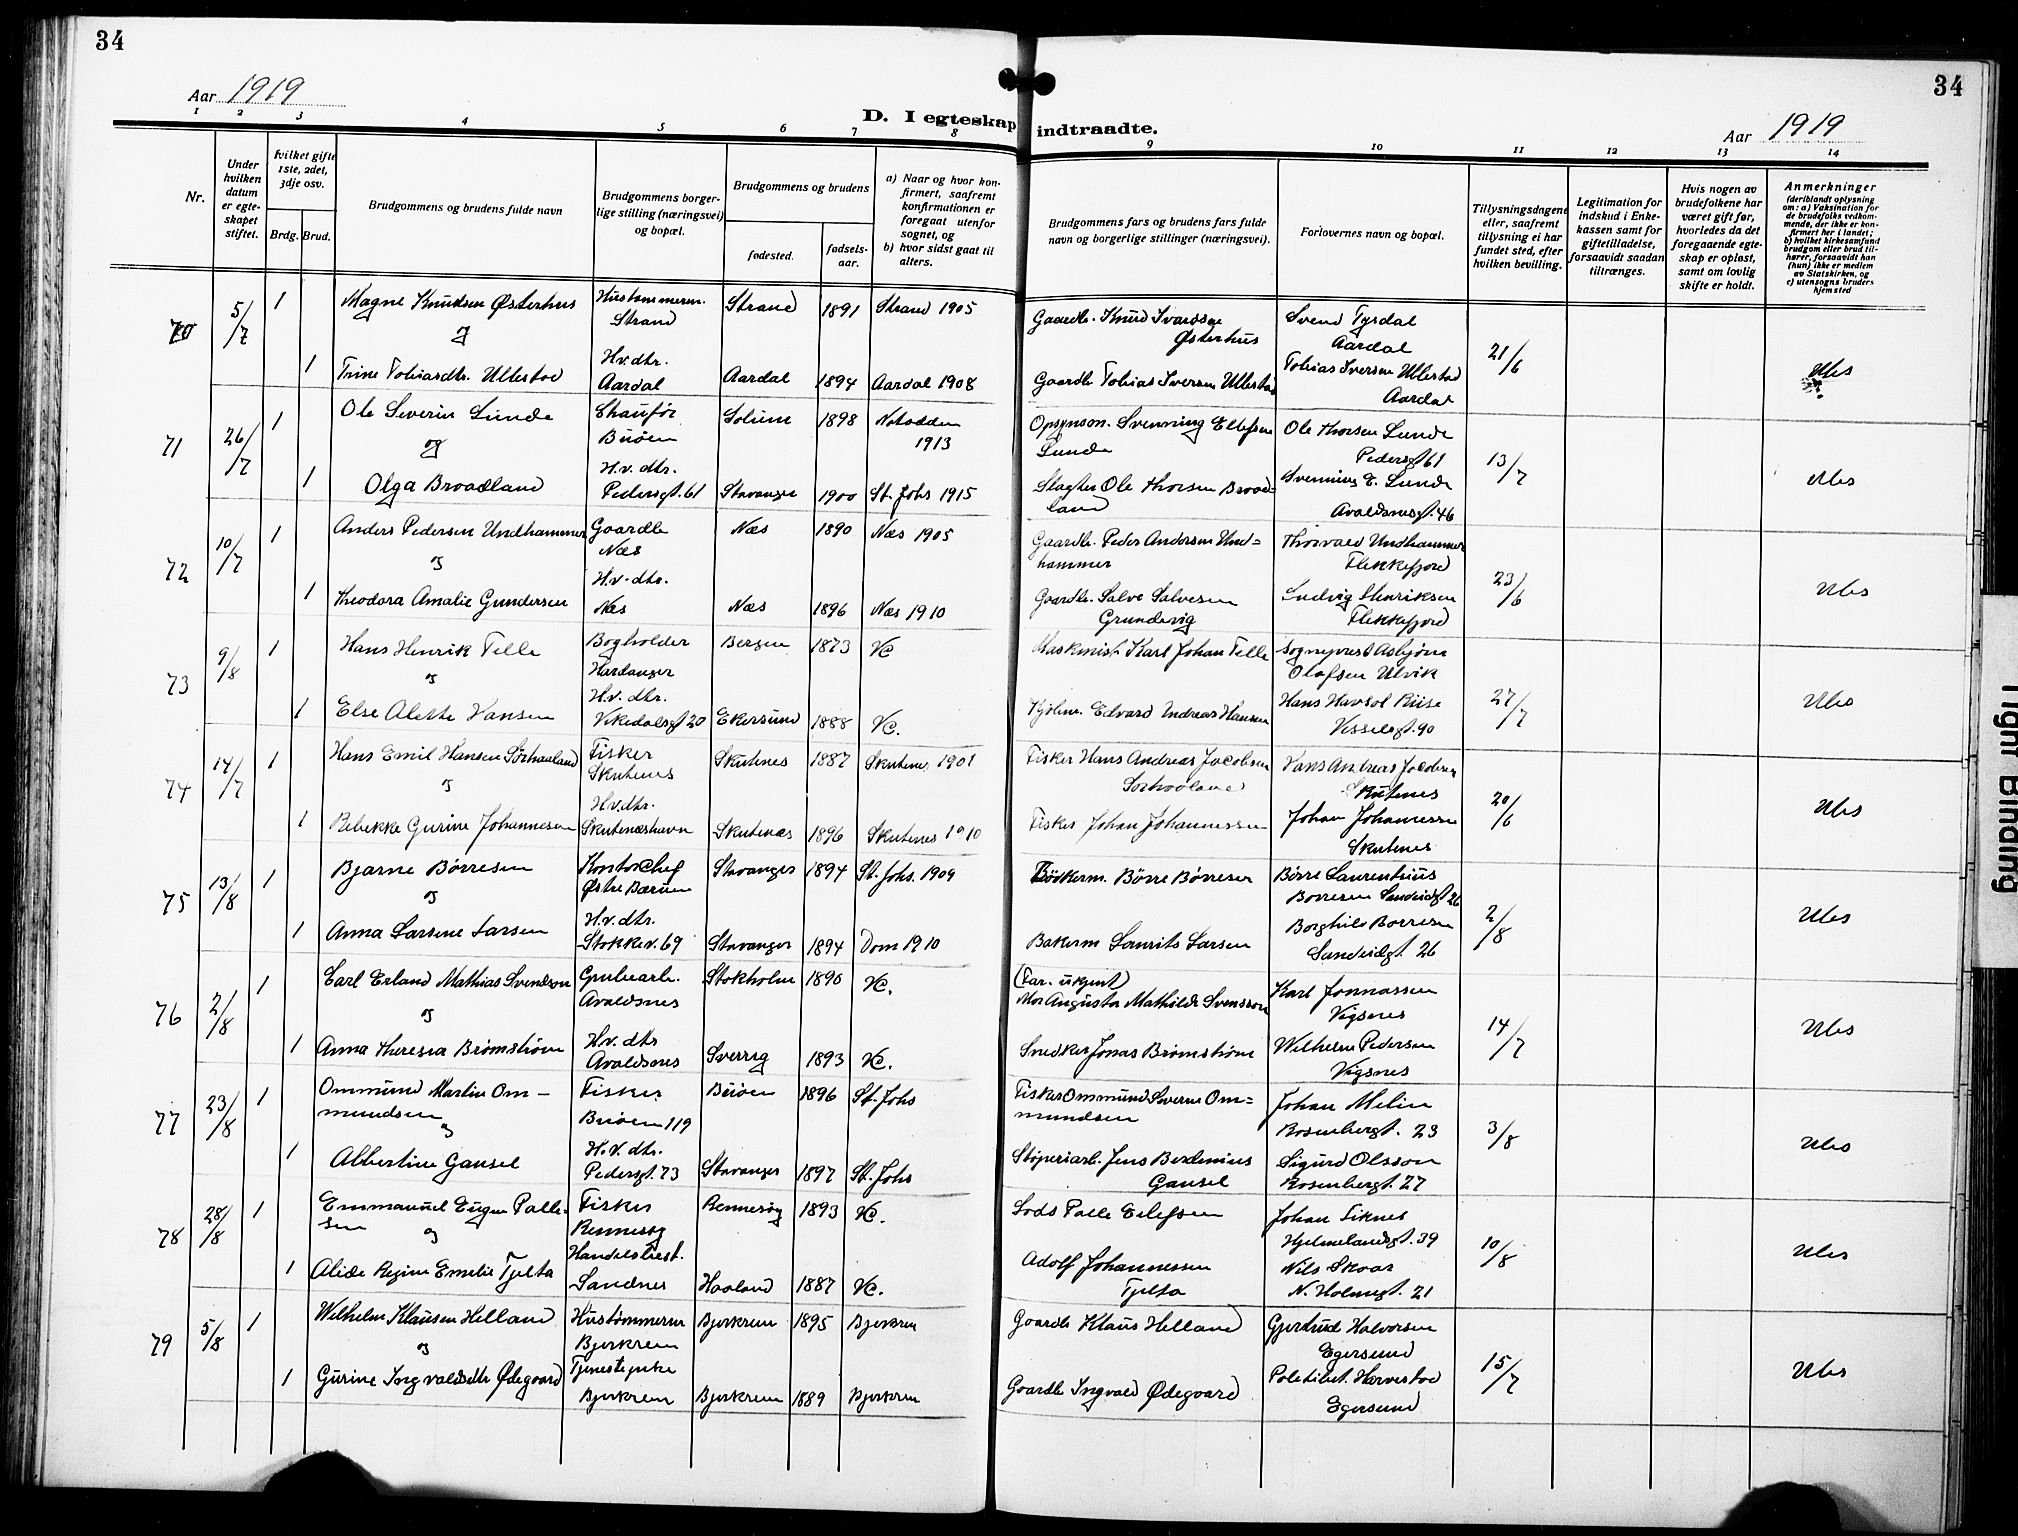 34
34
Aar 1919
D. I egteskap indtraadte.
Aar 1919
1 2 3 4 5 6 7 8 9 10 11 12 13 14
Nr.
Under hvilken datum er egteskapet stiftet.
hvilket gifte 1ste, 2det, 3dje osv.
Brdg. Brud.
Brudgommens og brudens fulde navn
Brudgommens borgerlige stilling (næringsvei) og bopæl.
Brudgommens og brudens
fødested.
fødselsaar.
a) Naar og hvor konfirmert, saafremt konfirmationen er foregaat utenfor sognet, og
b) hvor sidst gaat til alters.
Brudgommens fars og brudens fars fulde navn og borgerlige stillinger (næringsvei).
Forlovernes navn og bopæl.
Tillysningsdagene eller, saafremt tillysning ei har fundet sted, efter hvilken bevilling.
Legitimation for indskud i Enkekassen samt for giftetilladelse, forsaavidt saadan tiltrænges.
Hvis nogen av brudefolkene har været gift før, hvorledes da det foregaaende egteskap er opløst, samt om lovlig skifte er holdt.
Anmerkninger (deriblandt oplysning om: a) Vaksination for de brudefolks vedkommende, der ikke er konfirmert her i landet; b) hvilket kirkesamfund brudgom eller brud tilhører, forsaavidt han (hun) ikke er medlem av Statskirken, og c) utensogns bruders hjemsted
70 5/7 1 Magne Knudsen Østerhus Hustømmerm. Strand Strand 1891 Strand 1905
Gaardb. Knud Ivarssøn Østerhus Svend Tysdal Aardal 21/6 Ubs
og
1 Trine Tobiasdtr. Ullestad Hv. dtr. Aardal Aardal 1894 Aardal 1908
Gaardb Tobias Iversen Ullestad Tobias Iversen Ullestad Aardal
71 26/7 1 Ole Severin Lunde Chauför Buöen Solum 1898 Notodden 1913
Opsynsm. Svenning Ellefsen Lunde Ole Thorsen Lunde Pedersgt 61 13/7 Ubs
og
1 Olga Braadland H.v. dtr. Pedersgt. 61 Stavanger 1900 St. Johs 1915
Slagter Ole Thorsen Braadland Svenning E. Lunde Avaldsnesgt. 46
72 10/7 1 Anders Pedersen Undhammer Gaardb Næs Næs 1890 Næs 1905
Gaardb. Peder Andersen Undhammer Thorvald Undhammer Flekkefjord 23/6 Ubs
og
1 Theodora Amalie Gundersen H.v. dtr. Næs Næs 1896 Næs 1910
Gaardb. Salve Salvesen Grundevig Ludvig Henriksen Flekkefjord
73 9/8 1 Hans Henrik Telle Bogholder Hardanger Bergen 1873 VC
Maskinist Karl Johan Telle Sogneprest Asbjørn Olafsen Ulvik 27/7 Ubs
og
1 Else Alette Hansen H.v. dtr. Vikedalsgt 20 Ekersund 1888 VC.
Kjölm. Edvard Andreas Hansen Hans Havsol Riise Vesselsgt. 90
74 14/7 1 Hans Emil Hansen Sörhaaland Fisker Skutenes Skutenes 1887 Skutenes 1901
Fisker Hans Andreas Jacobsen Sorhaaland Hans Andreas Jacobsen Skutenes 20/6 Ubs
og
1 Rebekke Gurine Johannesen H.v. dtr. Skutenæshavn Skutenæs 1896 Skutenes 1910
Fisker Johan Johannessen Johan Johannessen Skutenes
75 13/8 1 Bjarne Börresen Kontorchef Østre Bærum Stavanger 1894 St. Johs. 1909
Bödkerm. Börre Börresen Börre Laurentius Borresen Sandeidgt 26 2/8 Ubs
og
1 Anna Larsene Larsen H.v. dtr. Stokkav. 69 Stavanger 1894 Dom 1910
Bakerm Laurits Larsen Borghild Borresen Sandeidgt. 26
76 2/8 1 Carl Erland Mathias Svendson Grubearb. Avaldsnes Stokholm 1890 VC.
(Far. ukjent) Mor Augusta Mathilde Svensson Karl Jonnassen Vigsnes 14/7 Ubs
og
1 Anna Theresia Brömström H.v. dtr Avaldsnes Sverrig 1893 VC.
Snedker Jonas Brömström Wilhelm Pedersen Vigsnes
77 23/8 1 Ommund Martin Ommundsen Fisker Buöen 119 Buöen 1896 St. Johs
Fisker Ommund Sverre Ommundsen Johan Melin Rosenbergt. 23 3/8 Ubs
og
1 Albertine Gausel H.v. dtr. Pedersgt. 73 Stavanger 1897 St. Johs
Støperiarb. Jens Berdinius Gausel Sigurd Olsson Rosenbergt. 27
78 28/8 1 Emmanuel Eugen Pallesen Fisker Rennesøy Rennesöy 1893 VC.
Lods Palle Eilefsen Johan Siknes Hjelmelandsgt. 39 10/8 Ubs
og
1 Alide Regine Emelie Tjelta Handelsbest. Sandnes Haaland 1887 VC.
Adolf Johannessen Tjelta Nils Skaar N. Holmegt. 21
79 5/8 1 Wilhelm Klausen Helland Hustømmerm Bjerkrem Bjerkrem 1895 Bjerkrem
Gaardb Klaus Helland Gjertrud Halvorsen Egersund 15/7 Ubs
og
1 Gurine Ingvaldsdtr Ødegaard Tjenestepike Bjerkrem Bjerkrem 1889 Bjerkrem
Gaardb Ingvald Ødegaard Politibet. Harvestad Egersund
Tight Binding